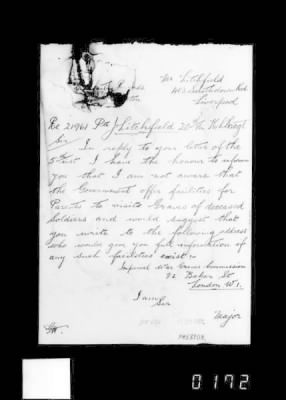 Mr Litchfield
Liverpool
Re 21961 Pte J. Litchfield 20th
Sir
In reply to your letter of the
5th inst I have the honour to inform
you that I am not aware that
the Government offer facilities for
Parents to visit Graves of deceased
Soldiers and would suggest that
you write to the following address
who would give you full information of
any such facilities exist:-
Imperial War Graves Commission
Baker St
London W1.
I am
Sir
Major
PRESTON
0172